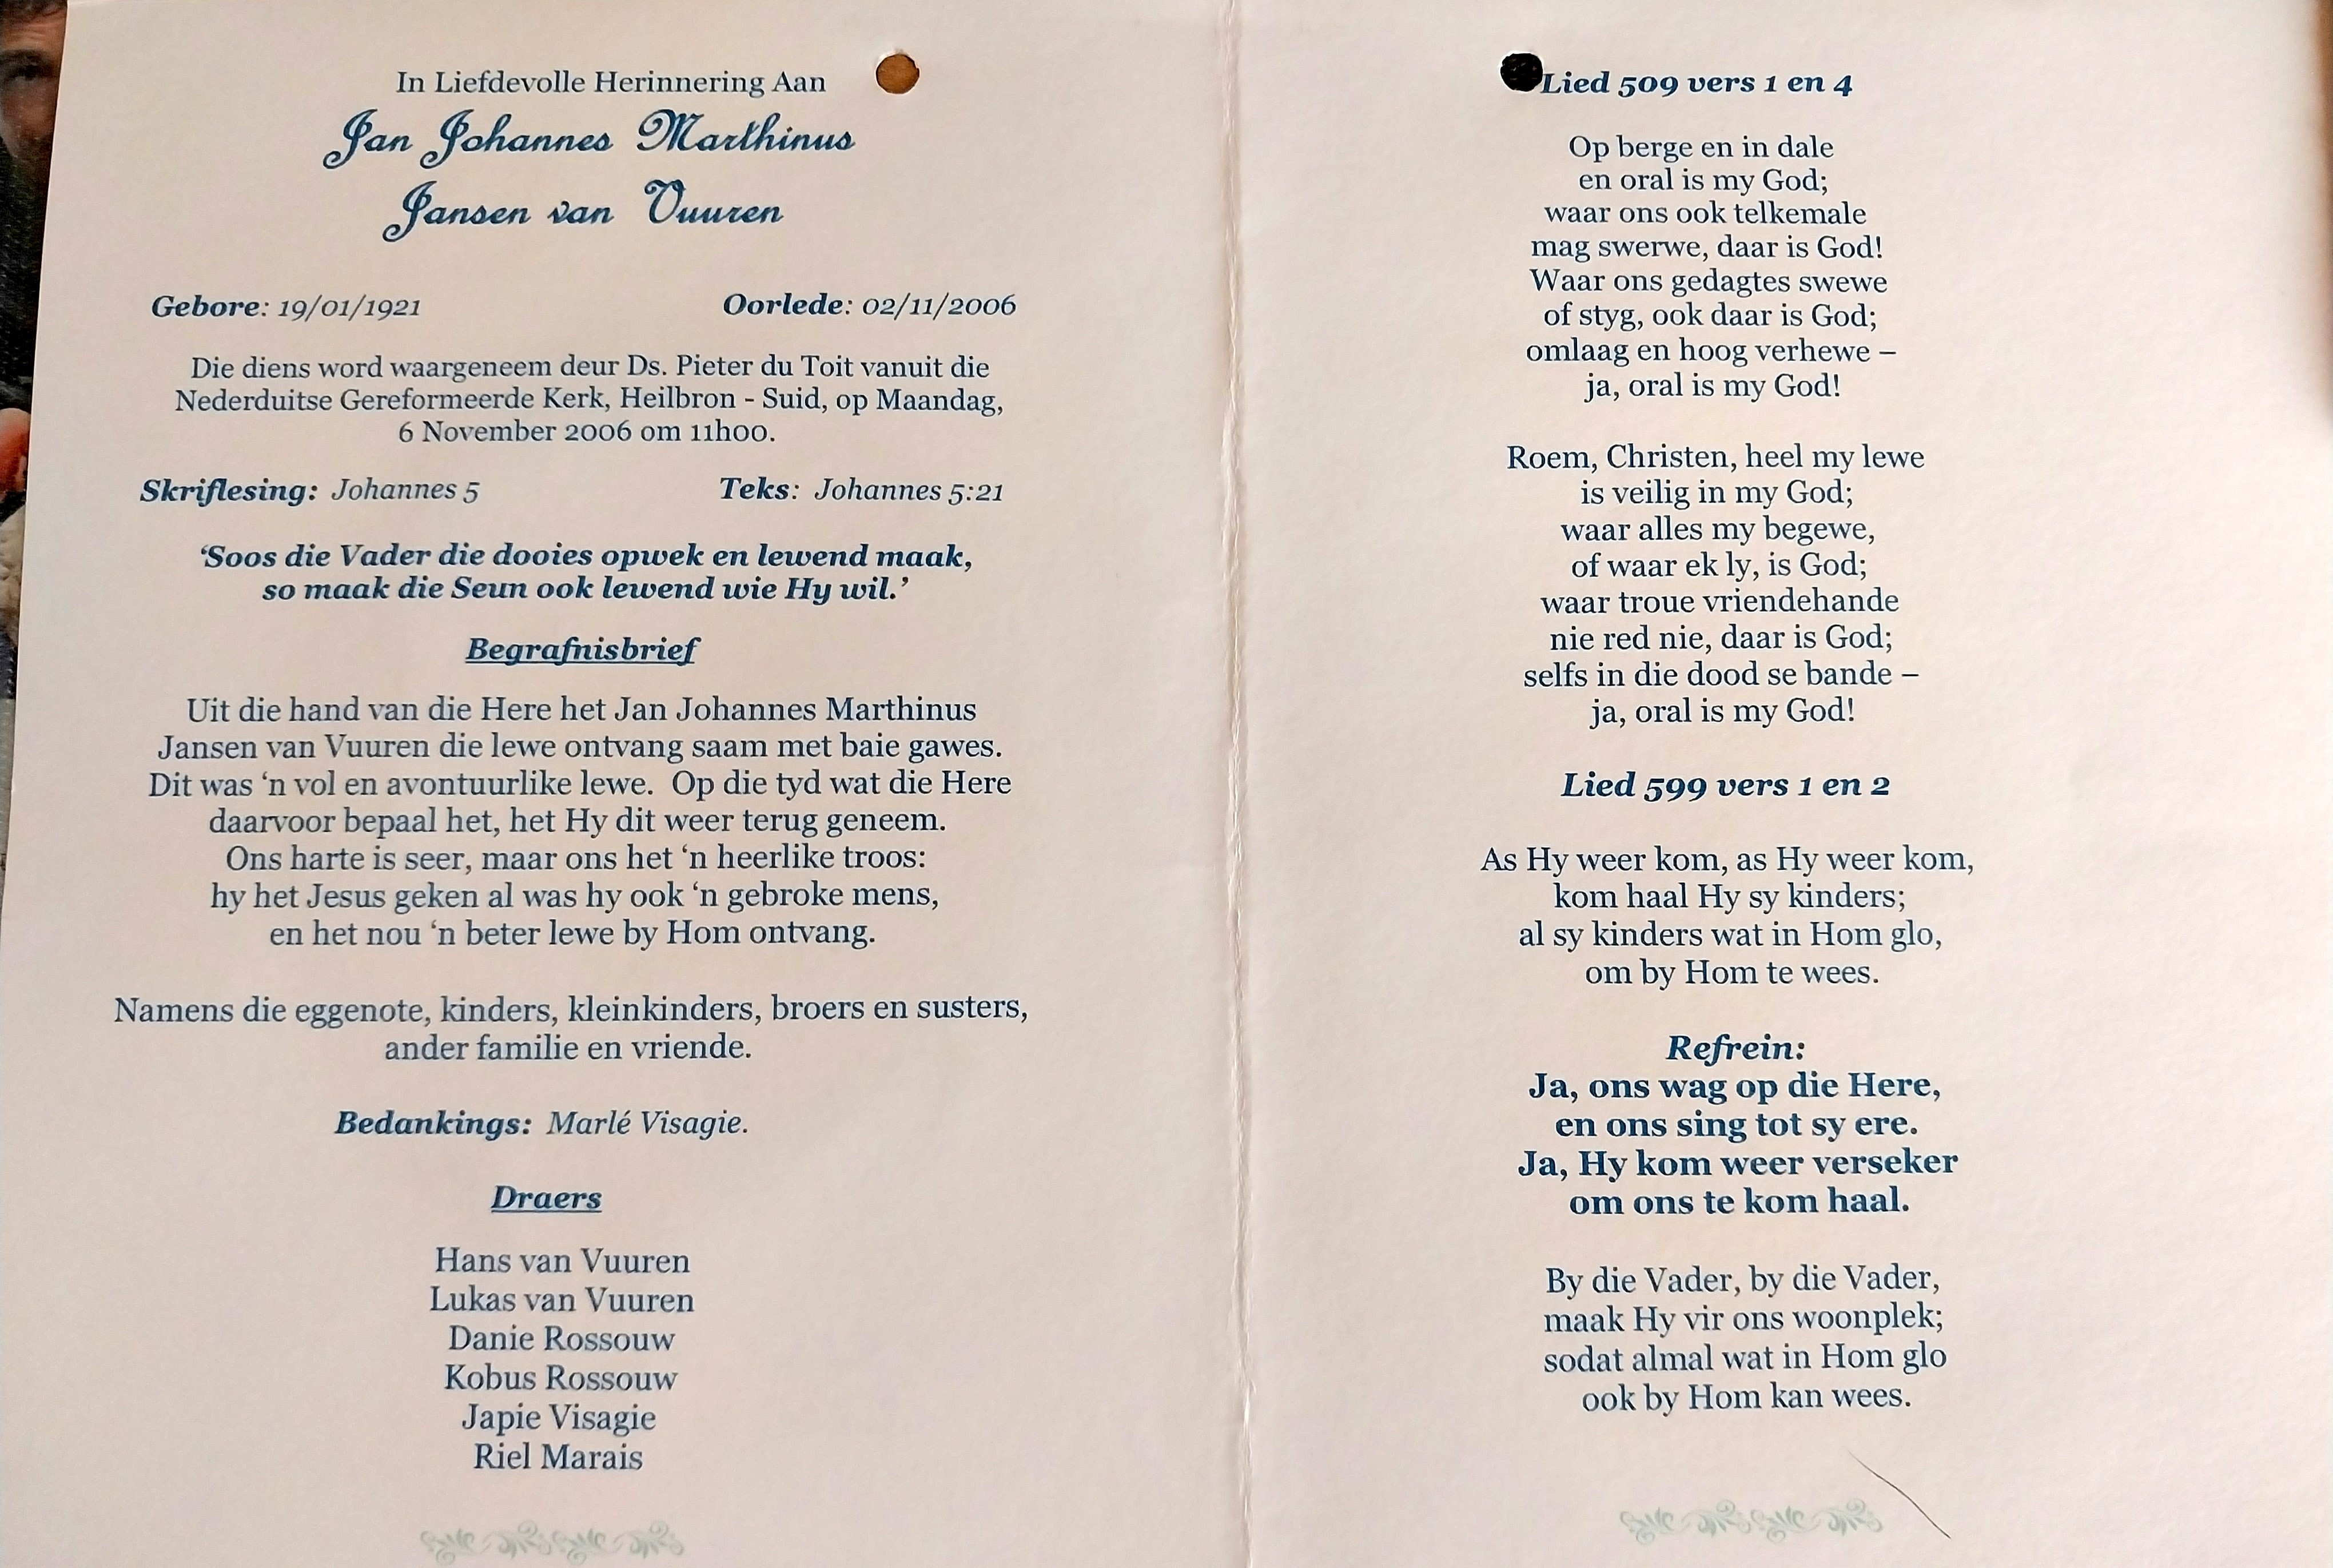 In Liefdevolle Herinnering Aan
Jan Johannes Marthinus
Jansen van Vuuren
Gebore: 19/01/1921 Oorlede: 02/11/2006
Die diens word waargeneem deur Ds. Pieter du Toit vanuit die
Nederduitse Gereformeerde Kerk, Heilbron - Suid, op Maandag,
6 November 2006 om 11h00.
Skriflesing: Johannes 5 Teks: Johannes 5:21
‘Soos die Vader die dooies opwek en lewend maak,
so maak die Seun ook lewend wie Hy wil.’
Begrafnisbrief
Uit die hand van die Here het Jan Johannes Marthinus
Jansen van Vuuren die lewe ontvang saam met baie gawes.
Dit was ‘n vol en avontuurlike lewe. Op die tyd wat die Here
daarvoor bepaal het, het Hy dit weer terug geneem.
Ons harte is seer, maar ons het ‘n heerlike troos:
hy het Jesus geken al was hy ook ‘n gebroke mens,
en het nou ‘n beter lewe by Hom ontvang.
Namens die eggenote, kinders, kleinkinders, broers en susters,
ander familie en vriende.
Bedankings: Marlé Visagie.
Draers
Hans van Vuuren
Lukas van Vuuren
Danie Rossouw
Kobus Rossouw
Japie Visagie
Riel Marais
Lied 509 vers 1 en 4
Op berge en in dale
en oral is my God;
waar ons ook telkemale
mag swerwe, daar is God!
Waar ons gedagtes swewe
of styg, ook daar is God;
omlaag en hoog verhewe –
ja, oral is my God!
Roem, Christen, heel my lewe
is veilig in my God;
waar alles my begewe,
of waar ek ly, is God;
waar troue vriendehande
nie red nie, daar is God;
selfs in die dood se bande –
ja, oral is my God!
Lied 599 vers 1 en 2
As Hy weer kom, as Hy weer kom,
kom haal Hy sy kinders;
al sy kinders wat in Hom glo,
om by Hom te wees.
Refrein:
Ja, ons wag op die Here,
en ons sing tot sy ere.
Ja, Hy kom weer verseker
om ons te kom haal.
By die Vader, by die Vader,
maak Hy vir ons woonplek;
sodat almal wat in Hom glo
ook by Hom kan wees.